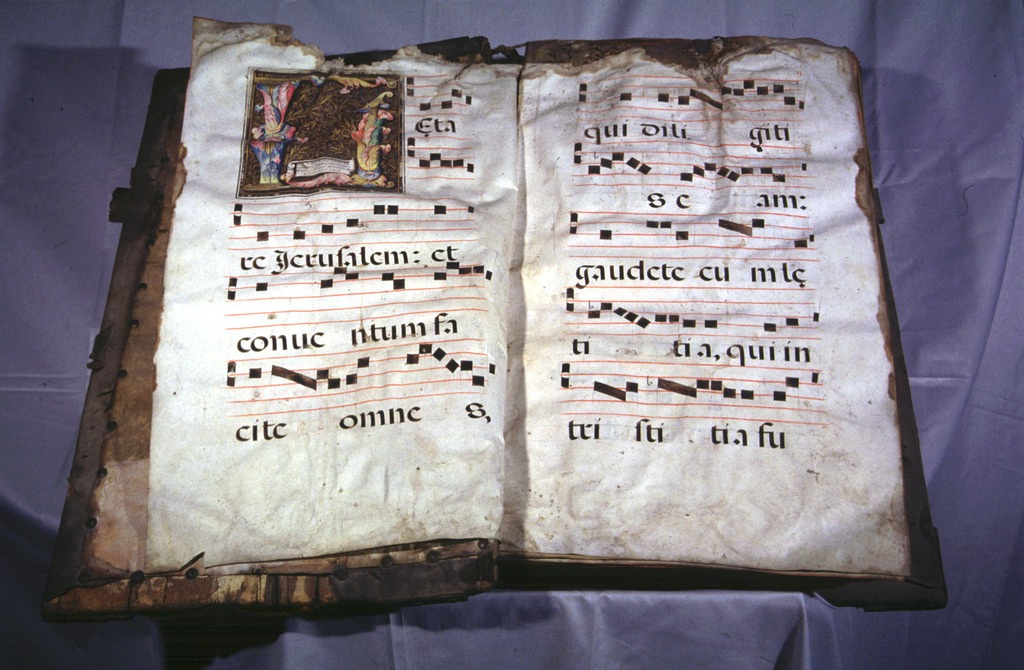 LEta
re Jerusalem: et
conue ntum fa
cite omne s,
qui dili giti
s e am:
gaudete cu m lę
ti ti a, qui in
tri sti ti a fu